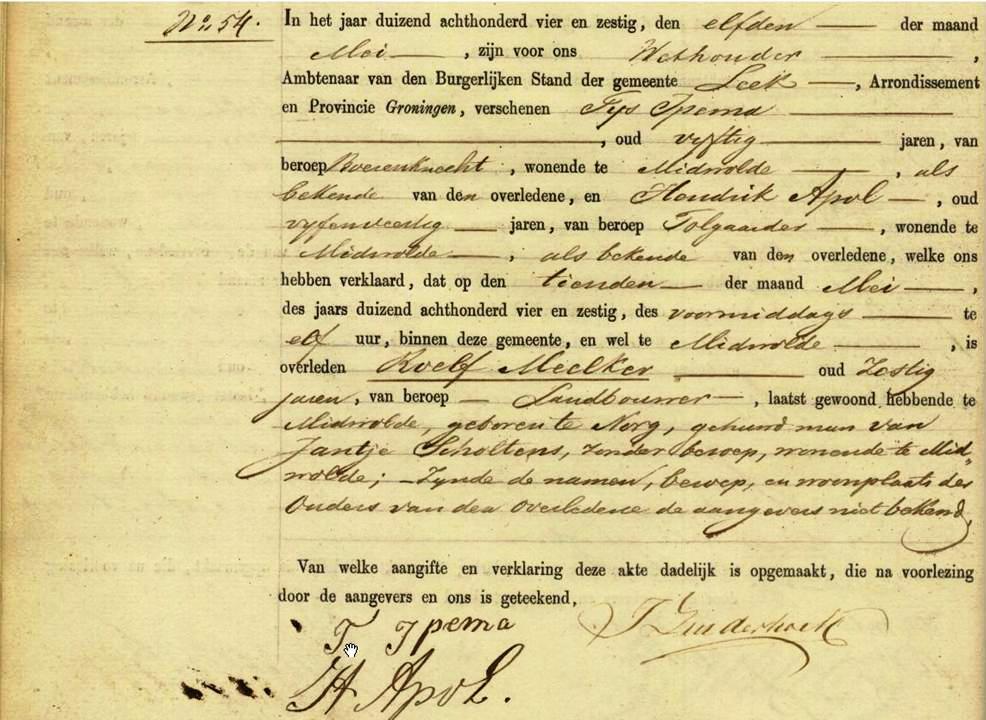 No. 54.
In het jaar duizend achthonderd vier en zestig, den elfden der maand
Mei, zijn voor ons Wethouder,
Ambtenaar van den Burgerlijken Stand der gemeente Leek, Arrondissement
en Provincie Groningen, verschenen Tijs Ipema
, oud vijftig jaren, van
beroep Boerenknecht, wonende te Midwolde, als
bekende van den overledene, en Hendrik Apol, oud
vijfenveertig jaren, van beroep Tolgaarder, wonende te
Midwolde, als bekende van den overledene, welke ons
hebben verklaard, dat op den tienden der maand Mei,
des jaars duizend achthonderd vier en zestig, des voormiddags te
elf uur, binnen deze gemeente, en wel te Midwolde, is
overleden Roelf Meelker oud Zestig
jaren, van beroep Landbouwer, laatst gewoond hebbende te
Midwolde, geboren te Norg, gehuwd man van
Jantje Scholtens, zonder beroep, wonende te Mid„
wolde; Zijnde de namen, beroep, en woonplaats der
Ouders van den Overledene de aangevers niet bekend,
Van welke aangifte en verklaring deze akte dadelijk is opgemaakt, die na voorlezing
door de aangevers en ons is geteekend.
T Ipema
H Apol.